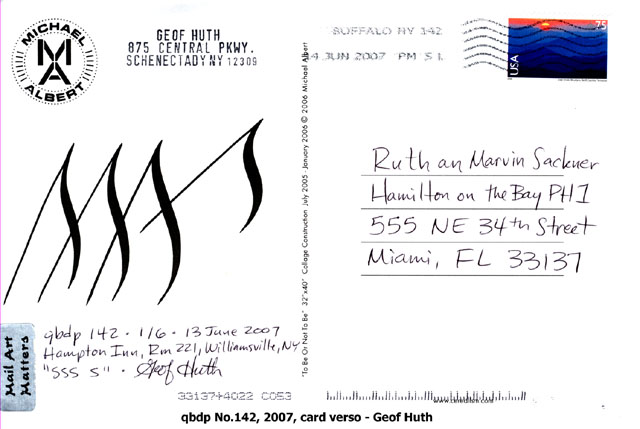 MICHAEL
MA
ALBERT
GEOF HUTH
875 CENTRAL PKWY.
SCHENECTADY NY 12309
BUFFALO NY 142
14 JUN 2007 PM 5 L
75
USA
"To Be Or Not To Be" 32"x40" Collage Construction July 2005 - January 2006 © 2006 Michael Albert
Ruth an Marvin Sackner
Hamilton on the Bay PH1
555 NE 34th Street
Miami, FL 33137
Mail Art
Matters
qbdp 142 · 1/6 · 13 June 2007
Hampton Inn, Rm 221, Williamsville, NY
"SSS S" · Geof Huth
33137+4022 C053
qbdp No.142, 2007, card verso - Geof Huth